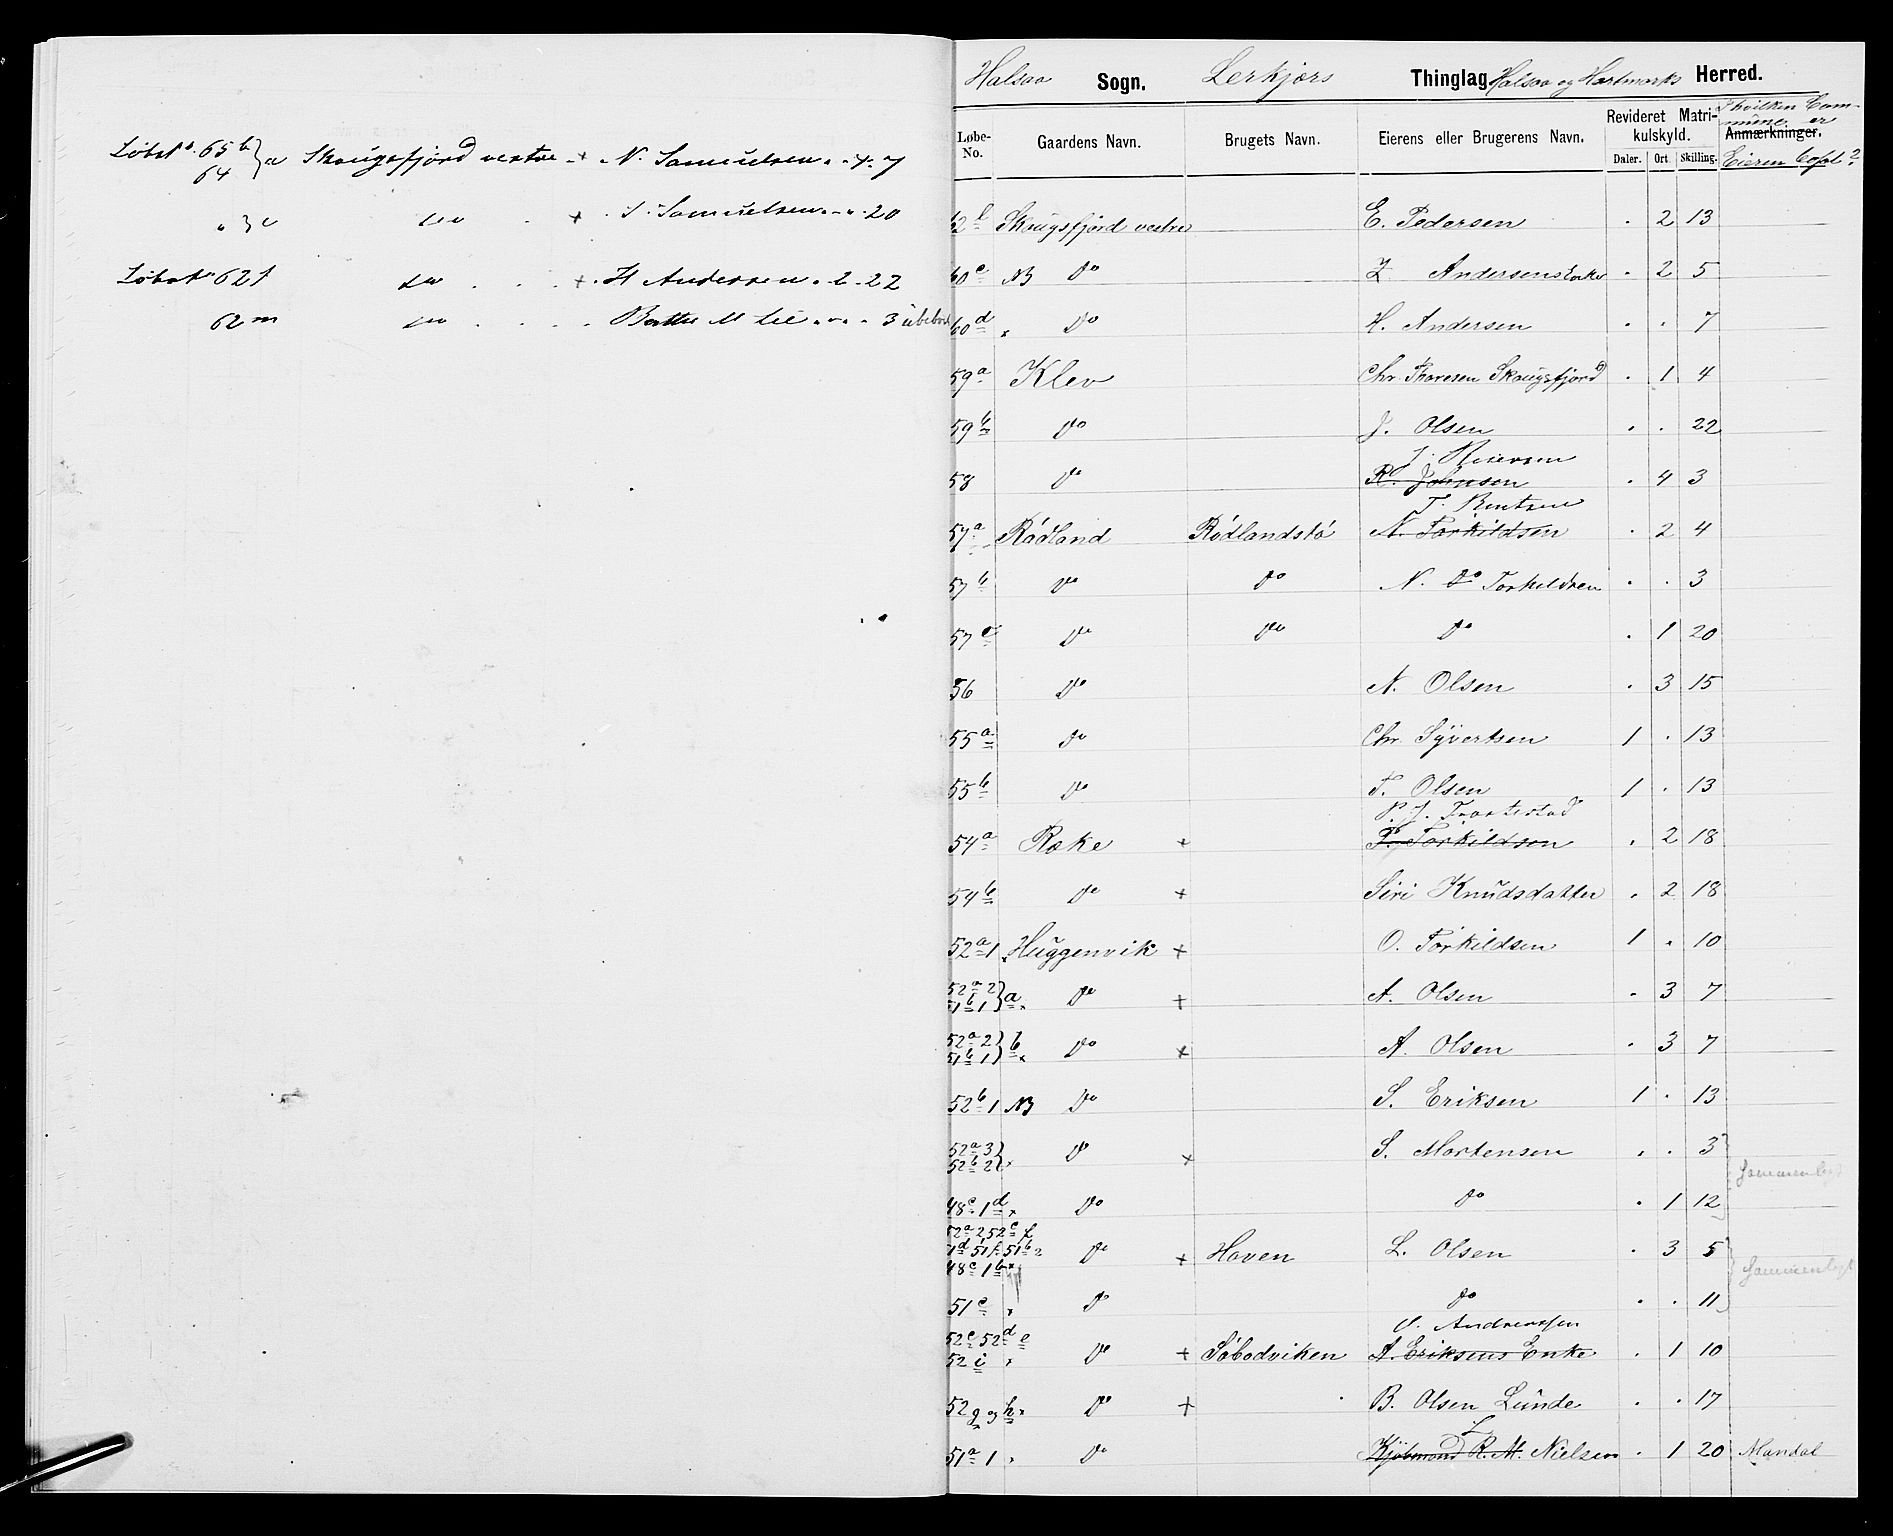 Løbe No. 65 b } a Skougsfjord vestre + N. Samuelsen . . 4. 7
64
" 3 c do + S. Samuelsen . . . 20
Løbe No 62 l do . . . + H Andersen . 2 . 22
62 m do . . . . Berthe M Lie . . . . 3 ubeboet
Halsaa Sogn. Lerkjærs Thinglag Halsaa og Hartmarks Herred.
Løbe-No. Gaardens Navn. Brugets Navn. Eierens eller Brugerens Navn. Revideret Matrikulskyld. Daler. Ort Skilling. Anmærkninger. I hvilken Commune er Eieren bosat?
62 l Skougsfjord vestre E. Pedersen . 2 13
60 c NB Do Andersens Enke . 2 5
60 d x Do H. Andersen . . 7
59 a Klev Chr. Thoresen Skougsfjord . 1 4
59 b Do J. Olsen . . 22
J. Reiersen
58 Do R. Johnsen . 4 3
T. Bentsen
57 a Rødland Rødlandslø N. Torkildsen . 2 4
57 b Do Do N. Do Torkildsen . . 3
57 c Do Do Do . 1 20
56 Do N. Olsen . 3 15
55 a Do Chr. Syvertsen 1 . 13
55 b Do T. Olsen 1 . 13
P. J. Trostestad
54 a Røke + P. Torkildson . 2 18
54 b Do + Siri Knudsdatter . 2 18
52 a 1 x Huggenvik + O. Torkildsen 1 . 10
52 a 2 } a x Do + A. Olsen . 3 7
51 b 1
52 a 2 } b x Do + A. Olsen . 3 7
51 b 1
52 b 1 NB Do S. Eriksen 1 . 13
52 a 3 } x Do + S. Mortensen . . 3
52 b 2
Sammenlagt
48 c 1 d x Do Do . 1 12
52 a 2, 52 c f
1 d 51 f. 51 b 2 Do + Haven L. Olsen . 3 5
48 c 1 b x
Sammenlagt
51 c x Do Do . . 11
O. Andreassen
52 c 52 d e
52 i x Do + Søbodviken A. Eriksens Enke . 1 10
52 g og h x Do + B. Olsen Lunde . . 17
L
51 a 1 x Do Kjøbmand R. M. Nielsen . 1 20 Mandal